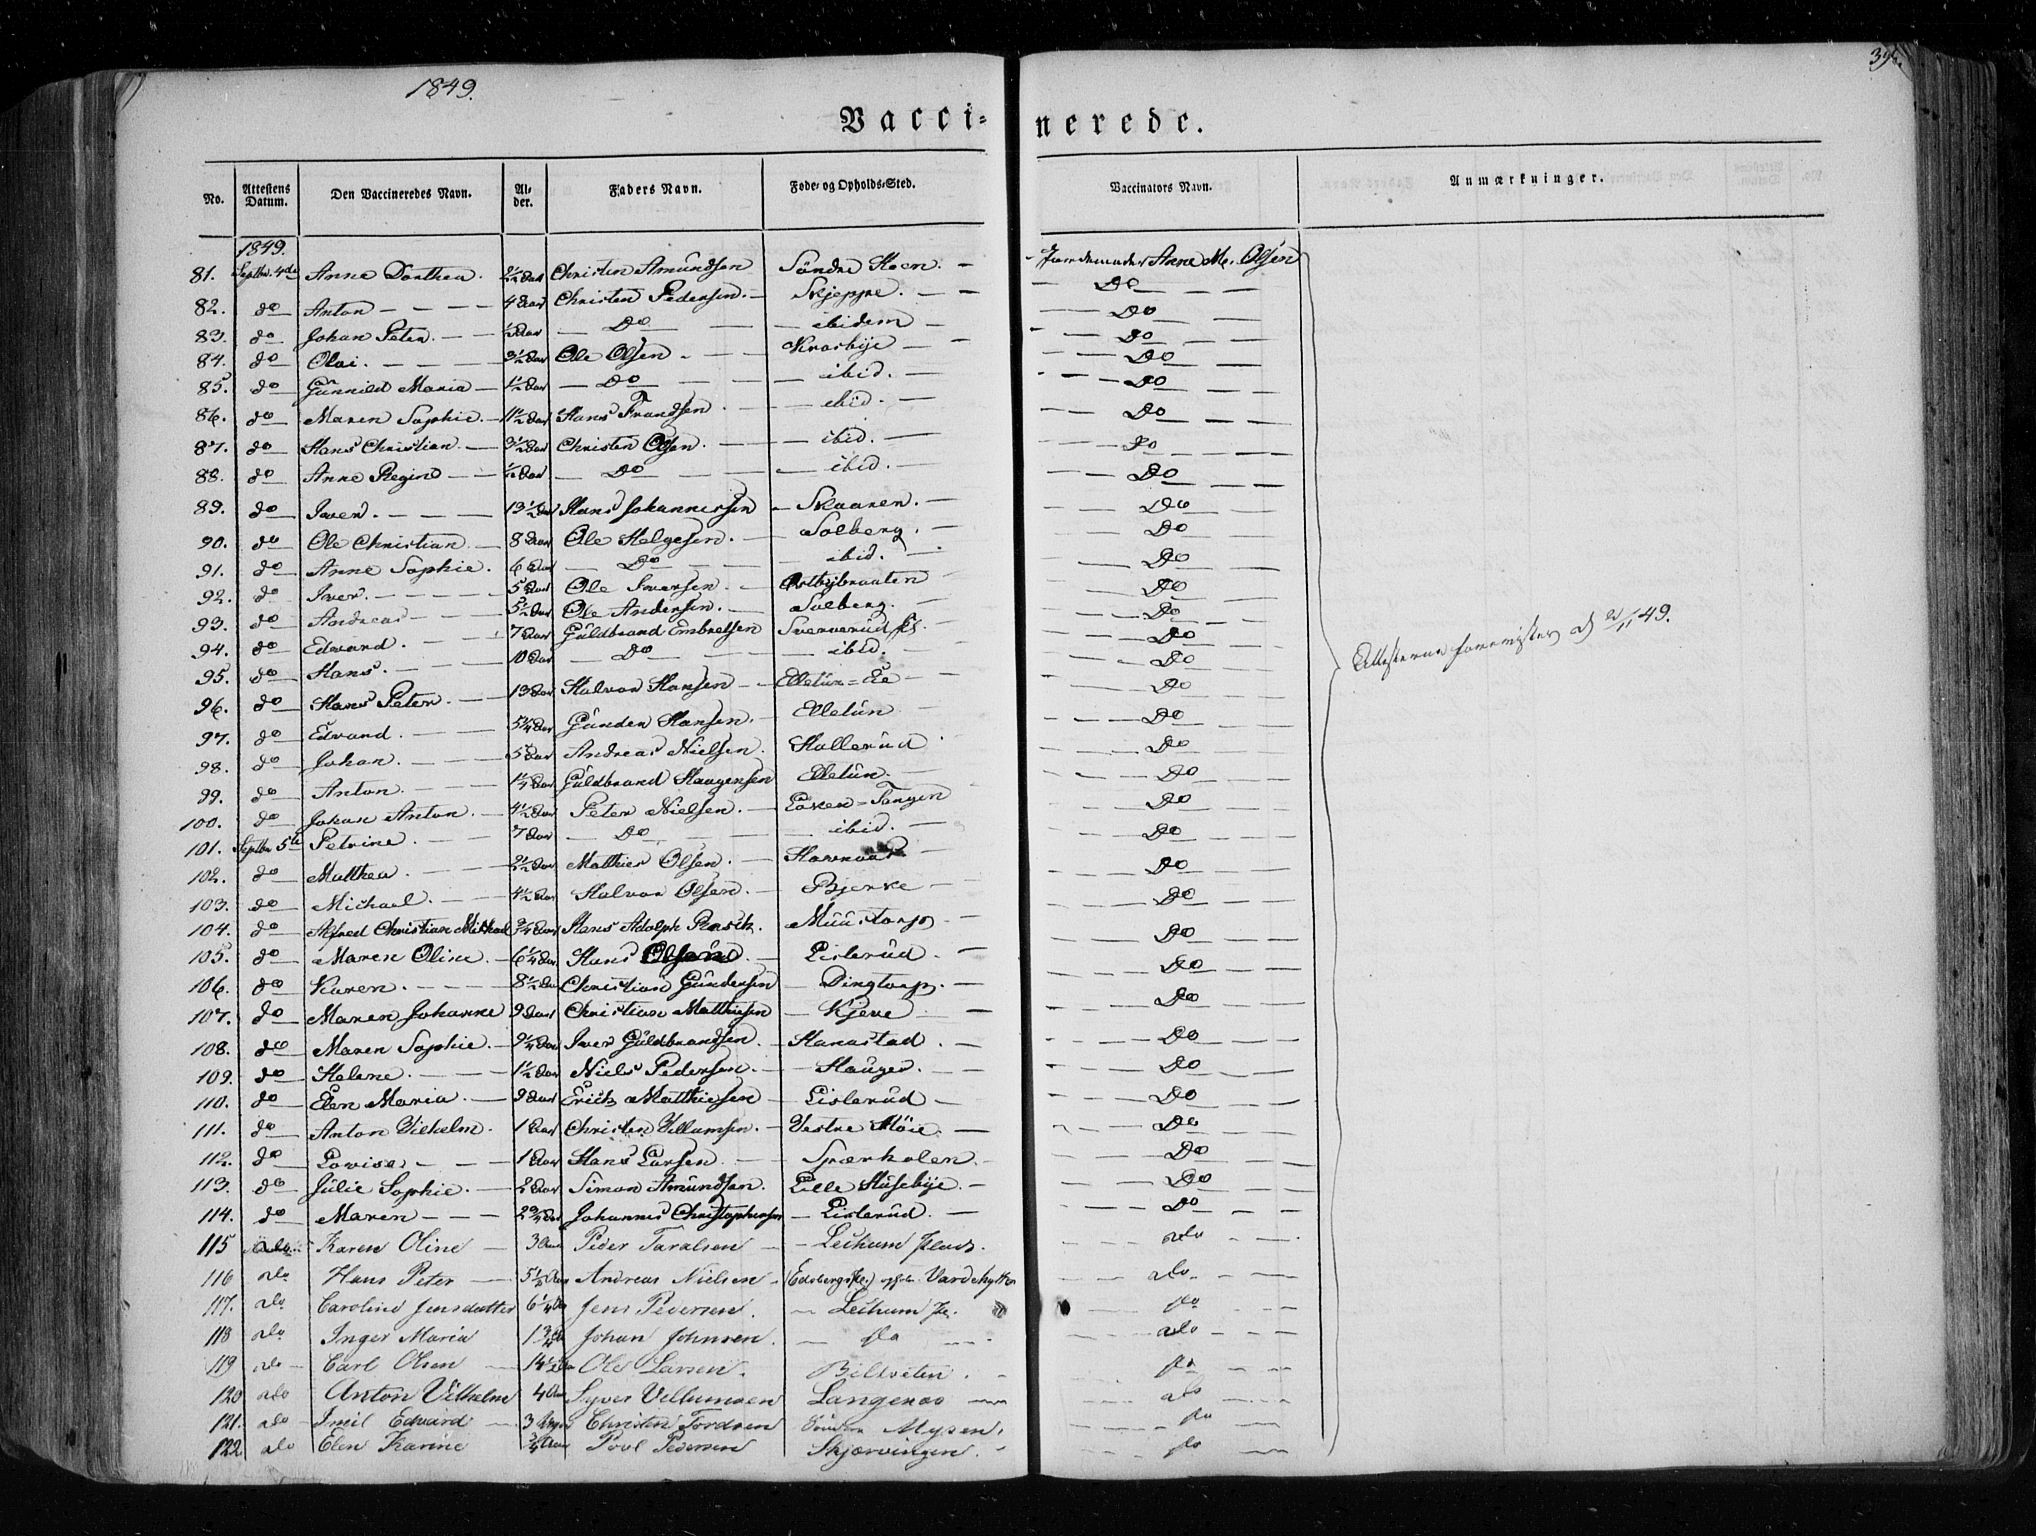 1849.
396.
Vacci=nerede.
No. Attestens Datum. Den Vaccineredes Navn. Al-der. Faders Navn. Føde- og Opholds-Sted. Vaccinators Navn. Anmærkninger.
1849.
81. Septbr. 4de Anne Dorthea. 2½ Aar Christen Amundsen Søndre Hoen. — Jordemoder Anne M. Olsen
82. do Anton — — — 4 Aar Christen Pedersen. — Skjeppe. — — Do
83. do Johan Peter. — ½ Aar — Do — ibidem — Do
84. do Olai. — — — 3½ Aar Ole Olsen — — Krosbye — Do
85. do Gunnild Maria — 1½ Aar — Do — ibid. — Do
86. do Maren Sophie. — 11½ Aar Hans Frandsen. — ibid. — Do
87. do Hans Christian. — 3½ Aar Christen Olsen. — ibid. — Do
88. do Anne Regine — ½ Aar — Do — ibid. — Do
89. do Iver. — — — 13½ Aar Hans Johannessen — Skaaren. — Do
90. do Ole Christian. — 8 Aar Ole Helgesen. — Solberg. — Do
91. do Anne Sophie. 6 Aar — Do — ibid. — Do
92. do Iver. — — — 5 Aar Ole Iversen — Østbybraaten — Do
93. do Andreas — 5½ Aar Ole Andersen. — Solberg. — Do
94. do Edvard. — 7 Aar Guldbrand Embretsen Sververud — Do
95. do Hans. — 10 Aar — Do — ibid. — Do
96. do Hans Peter. — 13 Aar Halvor Hansen — Elletun=Eie — Do
97. do Edvard. — — 5¼ Aar Gunder Hansen. — Elletun — Do
98. do Johan. — — 5 Aar Andreas Nielsen. Hallerud — Do
99. do Anton. — — 1¼ Aar Guldbrand Haagensen Elletun. — Do
100. do Johan Anton. — 4½ Aar Peter Nielsen. — Tangen — Do
101. Septbr 5te Petrine. — 7 Aar — Do — ibid. — Do
102. do Matthea. — 2½ Aar Matthies Olsen. — — Do
103. do Michael. — 4½ Aar Halvor Olsen. — Bjerke — Do
104. do Alfred Christian Michael ¾ Aar Hans Adolph — Muustorp — Do
105. do Maren Oline. — 6¼ Aar Hans Olsen. — Lislerud. — Do
106. do Karen. — — 8½ Aar Christian Gundersen — Dingtorp. — Do
107. do Maren Johanne 9 Aar Christian Matthiesen — Kjeve — Do
108. do Maren Sophie. — 9¼ Aar Iver Guldbrandsen. — Hanastad. — Do
109. do Helene. — — 1½ Aar Niels Pedersen. — Hauger. — Do
110. do Elen Maria. — 9 Aar Erick Matthiesen — Lislerud — Do
111. do Anton Vilhelm. 1 Aar Christen Villumsen. — Vestre Høie. — Do
112. do Lovise. — — 1 Aar Hans Larsen. — Spærholen. — Do
113. do Julie Sophie. — 2 Aar Simon Amundsen. Lille Huusebye. — Do
114. do Maren — — 2¾ Aar Johannes Christophersen — Lislerud. — Do
115 do Karen Oline — 3 Aar Peder Taralsen — Lechum Plads. do
116 do Hans Peter — 5½ Aar Andreas Nielsen — (Edsbergs) Vardehytten do
117. do Caroline Jensdatter 6¼ Aar Jens Pedersen. — Lechum Pl. do
118 do Inger Maria 13 Johan Johnsen. — do — do
119 do Carl Olsen — 14½ Aar Ole Larsen. Bildveten. do
120 do Anton Vilhelm 4 Aar Syver Vellumsen Langenes do
121. do Imil Edvard — 3 Christen Tordsen Søndre Mysen. do
122 do Elen Karine ¾ Aar Povl Pedersen Skjærvingen. do
Attesterne foreviste d 2/11 49.